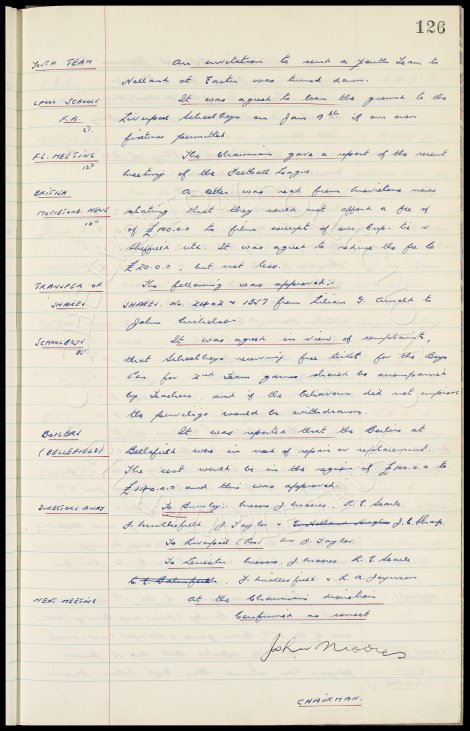 126
YOUTH TEAM An invitation to send a Youth Team to
Holland at Easter was turned down.
LPOOL SCHOOLS It was agreed to loan the ground to the
F.A. Liverpool Schoolboys on Jan 9th if our own
fixtures permitted.
F.L. MEETING The Chairman gave a report of the recent
meeting of the Football League
BRITISH A letter was read from Movietone news
MOVIETONE NEWS stating that they could not afford a fee of
of £100.0.0 to film excerpt of our Cup-tie v
Sheffield utd. It was agreed to reduce the fee to
£20.0.0, but not less.
TRANSFER OF The following was approved:
SHARES SHARES. No. 2402 & 1357 from Lilian G. Arnold to
John Nicholson.
SCHOOLBOYS It was agreed in view of complaints,
that Schoolboys receiving free tickets for the Boys
Pen for 2nd Team games should be accompanied
by Teachers, and if the behaviour did not improve
the privilege would be withdrawn.
BOILERS It was reported that the Boilers at
(BELLEFIELD) Bellefield were in need of repair or replacement.
The cost would be in the region of £100.0.0 to
£140.0.0 and this was approved.
DIRECTORS AWAY To Burnley: Messrs J. Moores, R.E. Searle
F. Micklesfield J. Taylor & E. Holland Hughes J.C. Sharp.
To Liverpool (Res) Mr J. Taylor.
To Leicester Messrs. J. Moores R.E. Searle
F. Micklesfield & R.A. Joynson
NEXT MEETING At the Chairmans discretion
Confirmed as correct
John Moores
CHAIRMAN.